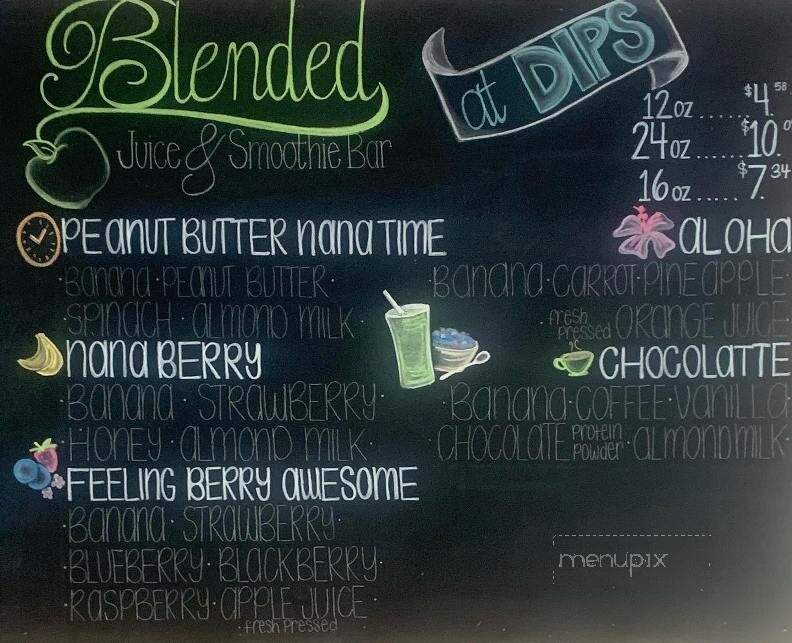 Blended
at DIPS
Juice & Smoothie Bar
12 oz ...... $4.58
24 oz ...... $10.0
16 oz ...... $7.34
PEANUT BUTTER NANA TIME
BANANA · PEANUT BUTTER ·
SPINACH · ALMOND MILK ·
NANA BERRY
BANANA · STRAWBERRY ·
HONEY · ALMOND MILK ·
FEELING BERRY AWESOME
BANANA · STRAWBERRY ·
BLUEBERRY · BLACKBERRY ·
· RASPBERRY · APPLE JUICE ·
fresh pressed
ALOHA
BANANA · CARROT · PINEAPPLE
· fresh pressed ORANGE JUICE ·
CHOCOLATTE
BANANA · COFFEE · VANILLA
CHOCOLATE protein powder · ALMOND MILK ·
menupix